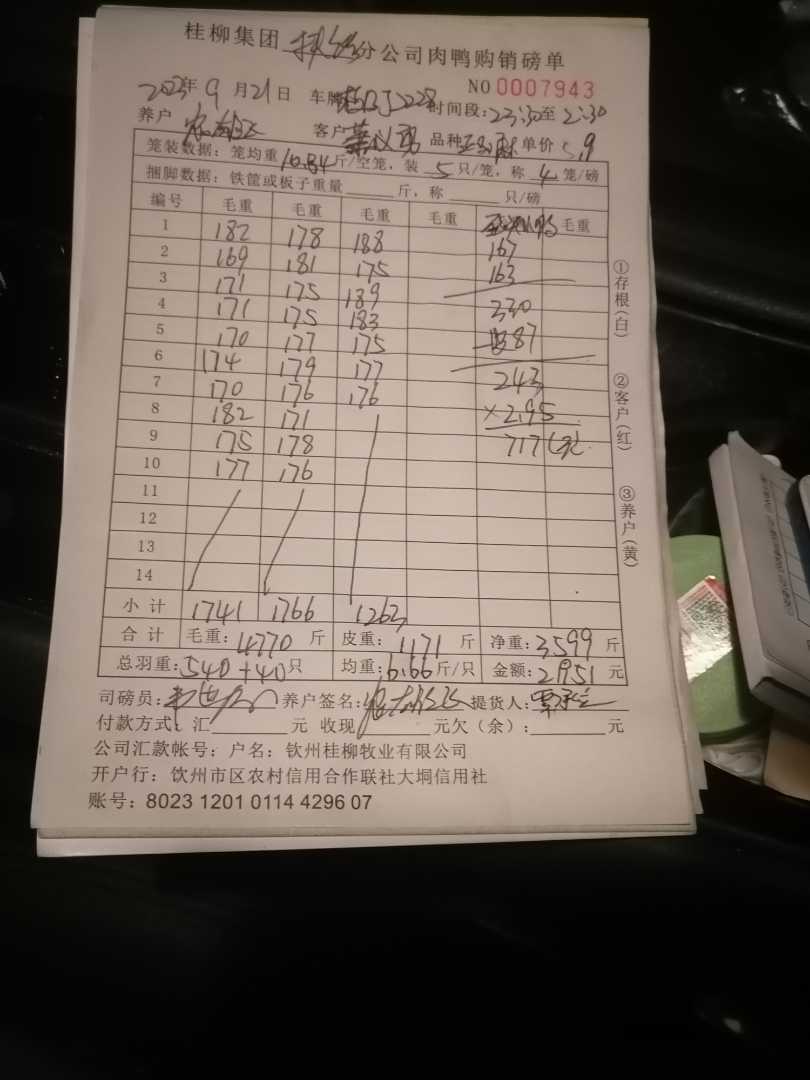 桂柳集团 分公司肉鸭购销磅单
NO 0007943
2023年 9 月 21 日 车牌 时间段: 23:30 至 2:30
养户 客户 品种 单价 5.9
笼装数据: 笼均重 10.84 斤/空笼, 装 5 只/笼, 称 4 笼/磅
捆脚数据: 铁筐或板子重量 斤, 称 只/磅
编号 毛重 毛重 毛重 毛重 毛重
1 182 178 188 167
2 169 181 175 163
3 171 175 189 330
4 171 175 183 87
5 170 177 175 243
6 174 179 177 ×2.95
7 170 176 176 717(元)
8 182 171
9 175 178
10 177 176
11
12
13
14
小计 1741 1766 1263
合计 毛重: 4770 斤 皮重: 1171 斤 净重: 3599 斤
总羽重: 540+40 只 均重: 6.66 斤/只 金额: 21951 元
司磅员: 养户签名: 提货人:
付款方式: 汇 元 收现 元欠(余): 元
公司汇款帐号: 户名: 钦州桂柳牧业有限公司
开户行: 钦州市区农村信用合作联社大垌信用社
账号: 8023 1201 0114 4296 07
①存根(白)
②客户(红)
③养户(黄)